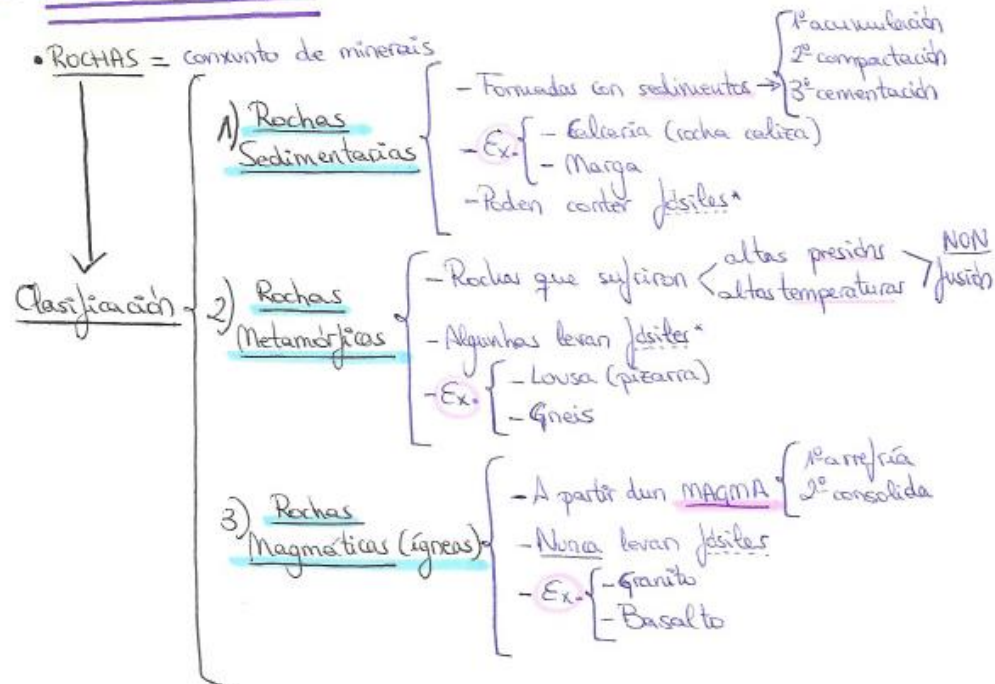 • ROCHAS = conxunto de minerais
Clasificación
1) Rochas
Sedimentarias
- Formadas con sedimentos →
1º acumulación
2º compactación
3º cementación
- Ex.
- Calcaria (rocha caliza)
- Marga
- Poden conter fósiles*
2) Rochas
Metamórficas
- Rochas que sufriron
altas presións
altas temperaturas
NON
fusión
- Algunhas levan fósiles*
- Ex.
- Lousa (pizarra)
- Gneis
3) Rochas
Magmáticas (ígneas)
- A partir dun MAGMA
1º arrefría
2º consolida
- Nunca levan fósiles
- Ex.
- Granito
- Basalto